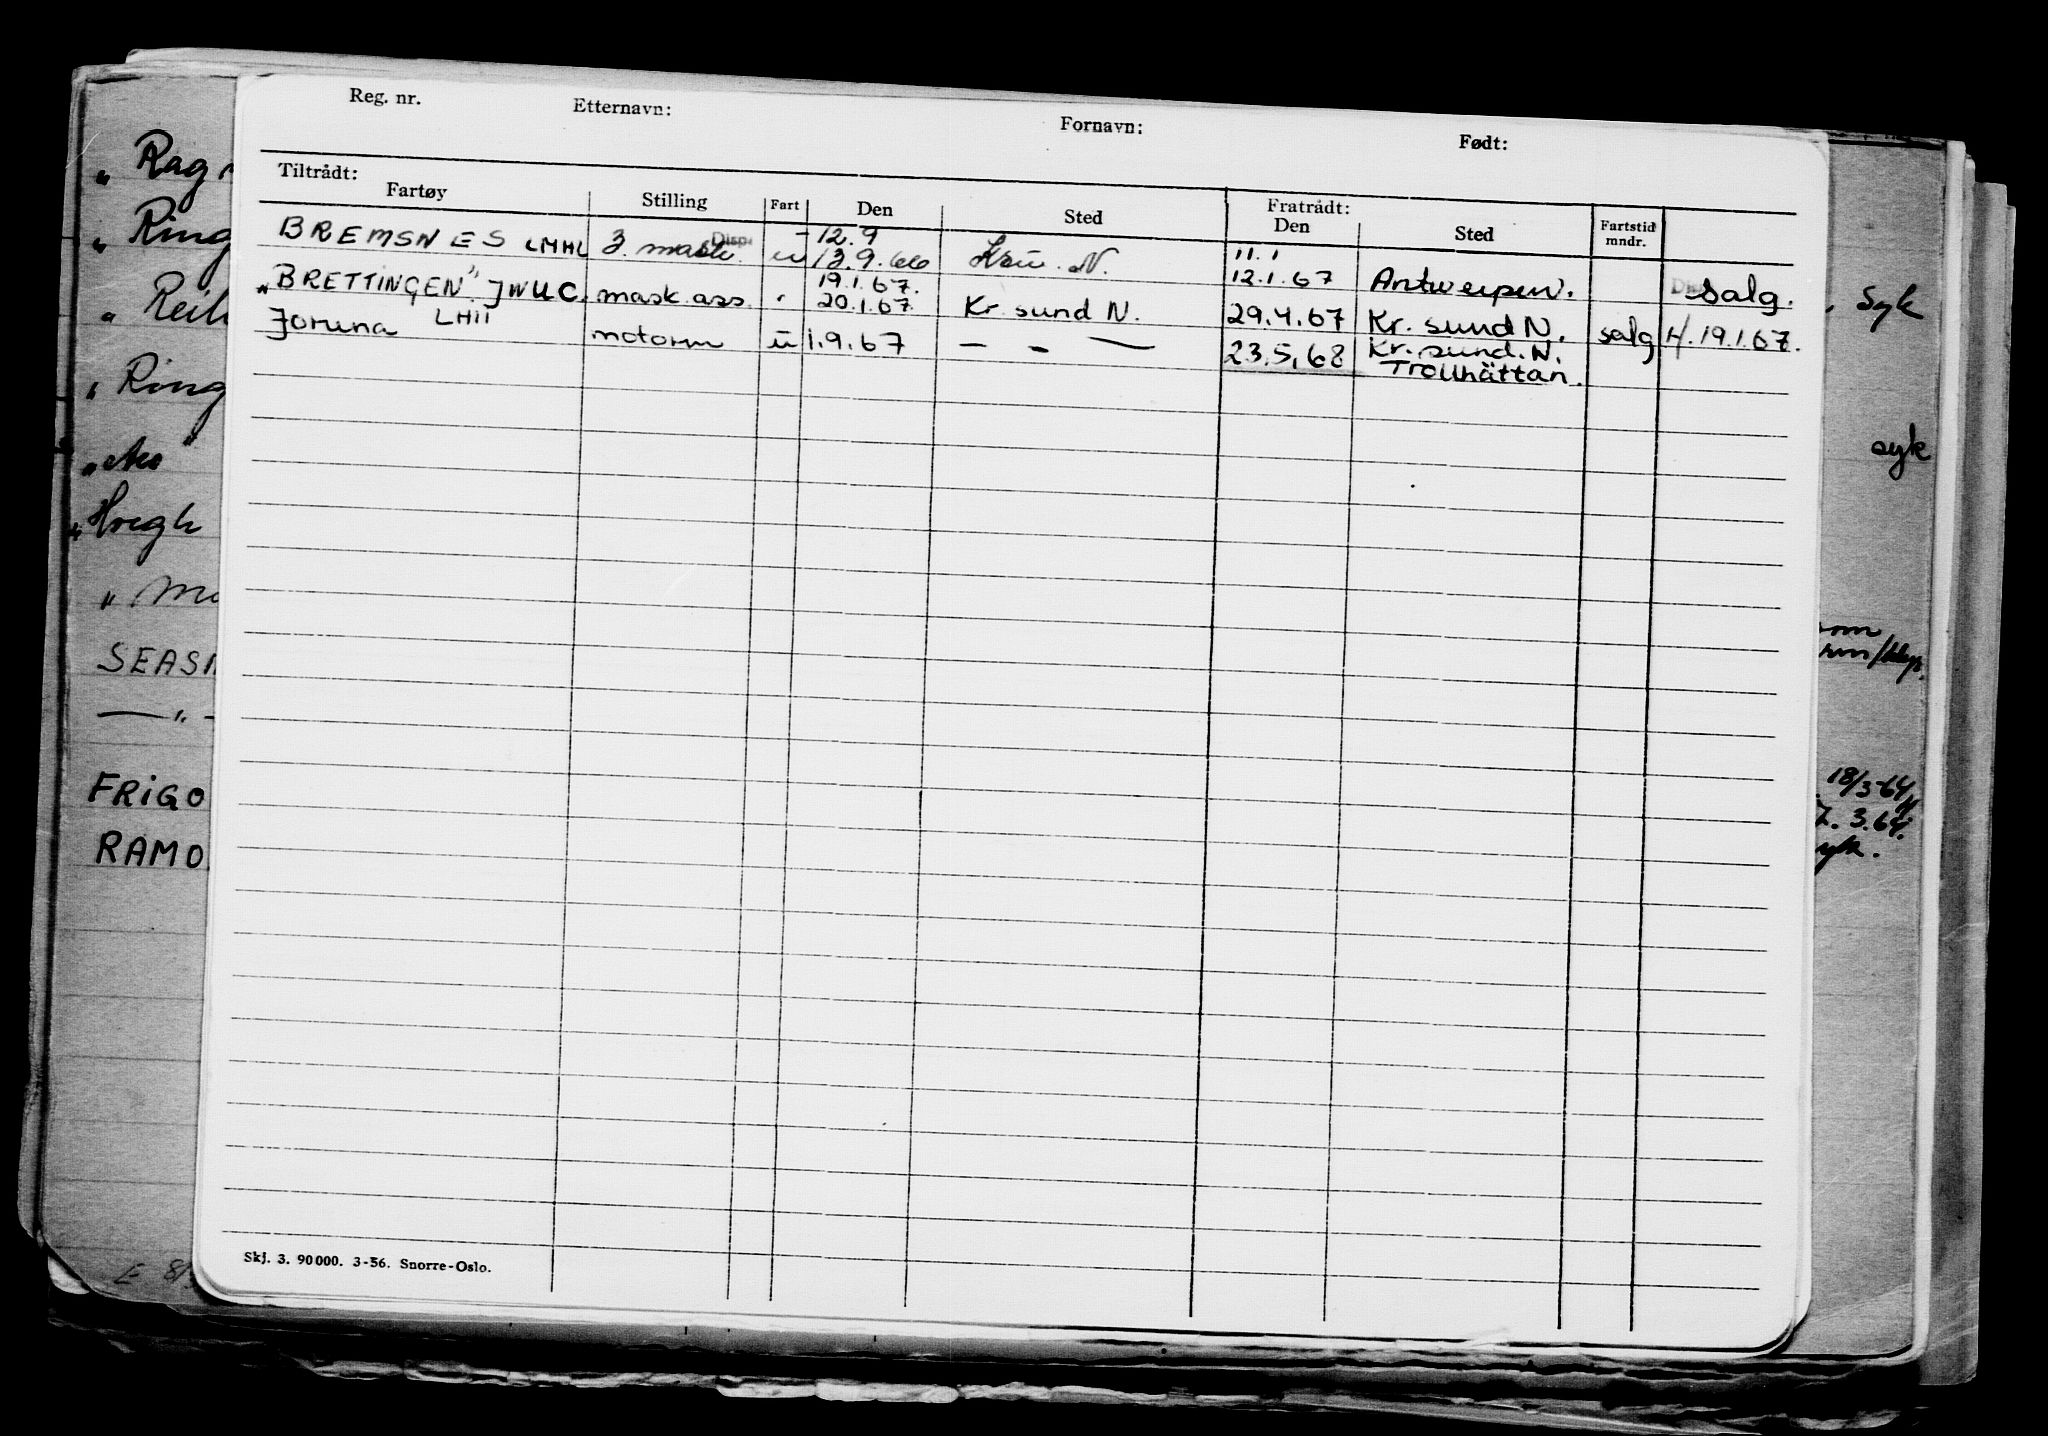 Reg. nr. Etternavn: Fornavn: Født:
Tiltrådt: Fratrådt:
Fartøy Stilling Fart Den Sted Den Sted Fartstid mndr.
BREMSNES LMHL 3. mask. Disp. u 12.9 13.9.66 N. 11.1 12.1.67 Antwerpen. salg.
"BRETTINGEN" JWUC. mask. ass. " 19.1.67. 20.1.67. Kr. sund N. 29.4.67 Kr. sund N. salg 19.1.67.
Joruna LHII motorm u 1.9.67 — - — 23.5.68 Kr. sund. N. Trollhättan.
Skj. 3. 90000. 3-56. Snorre-Oslo.
" Rag
" Ring
" Reih
" Ring
"Høegh
SEAS
— " -
FRIGO
RAMO
syk
syk
18/3-64
3.64.
syk.